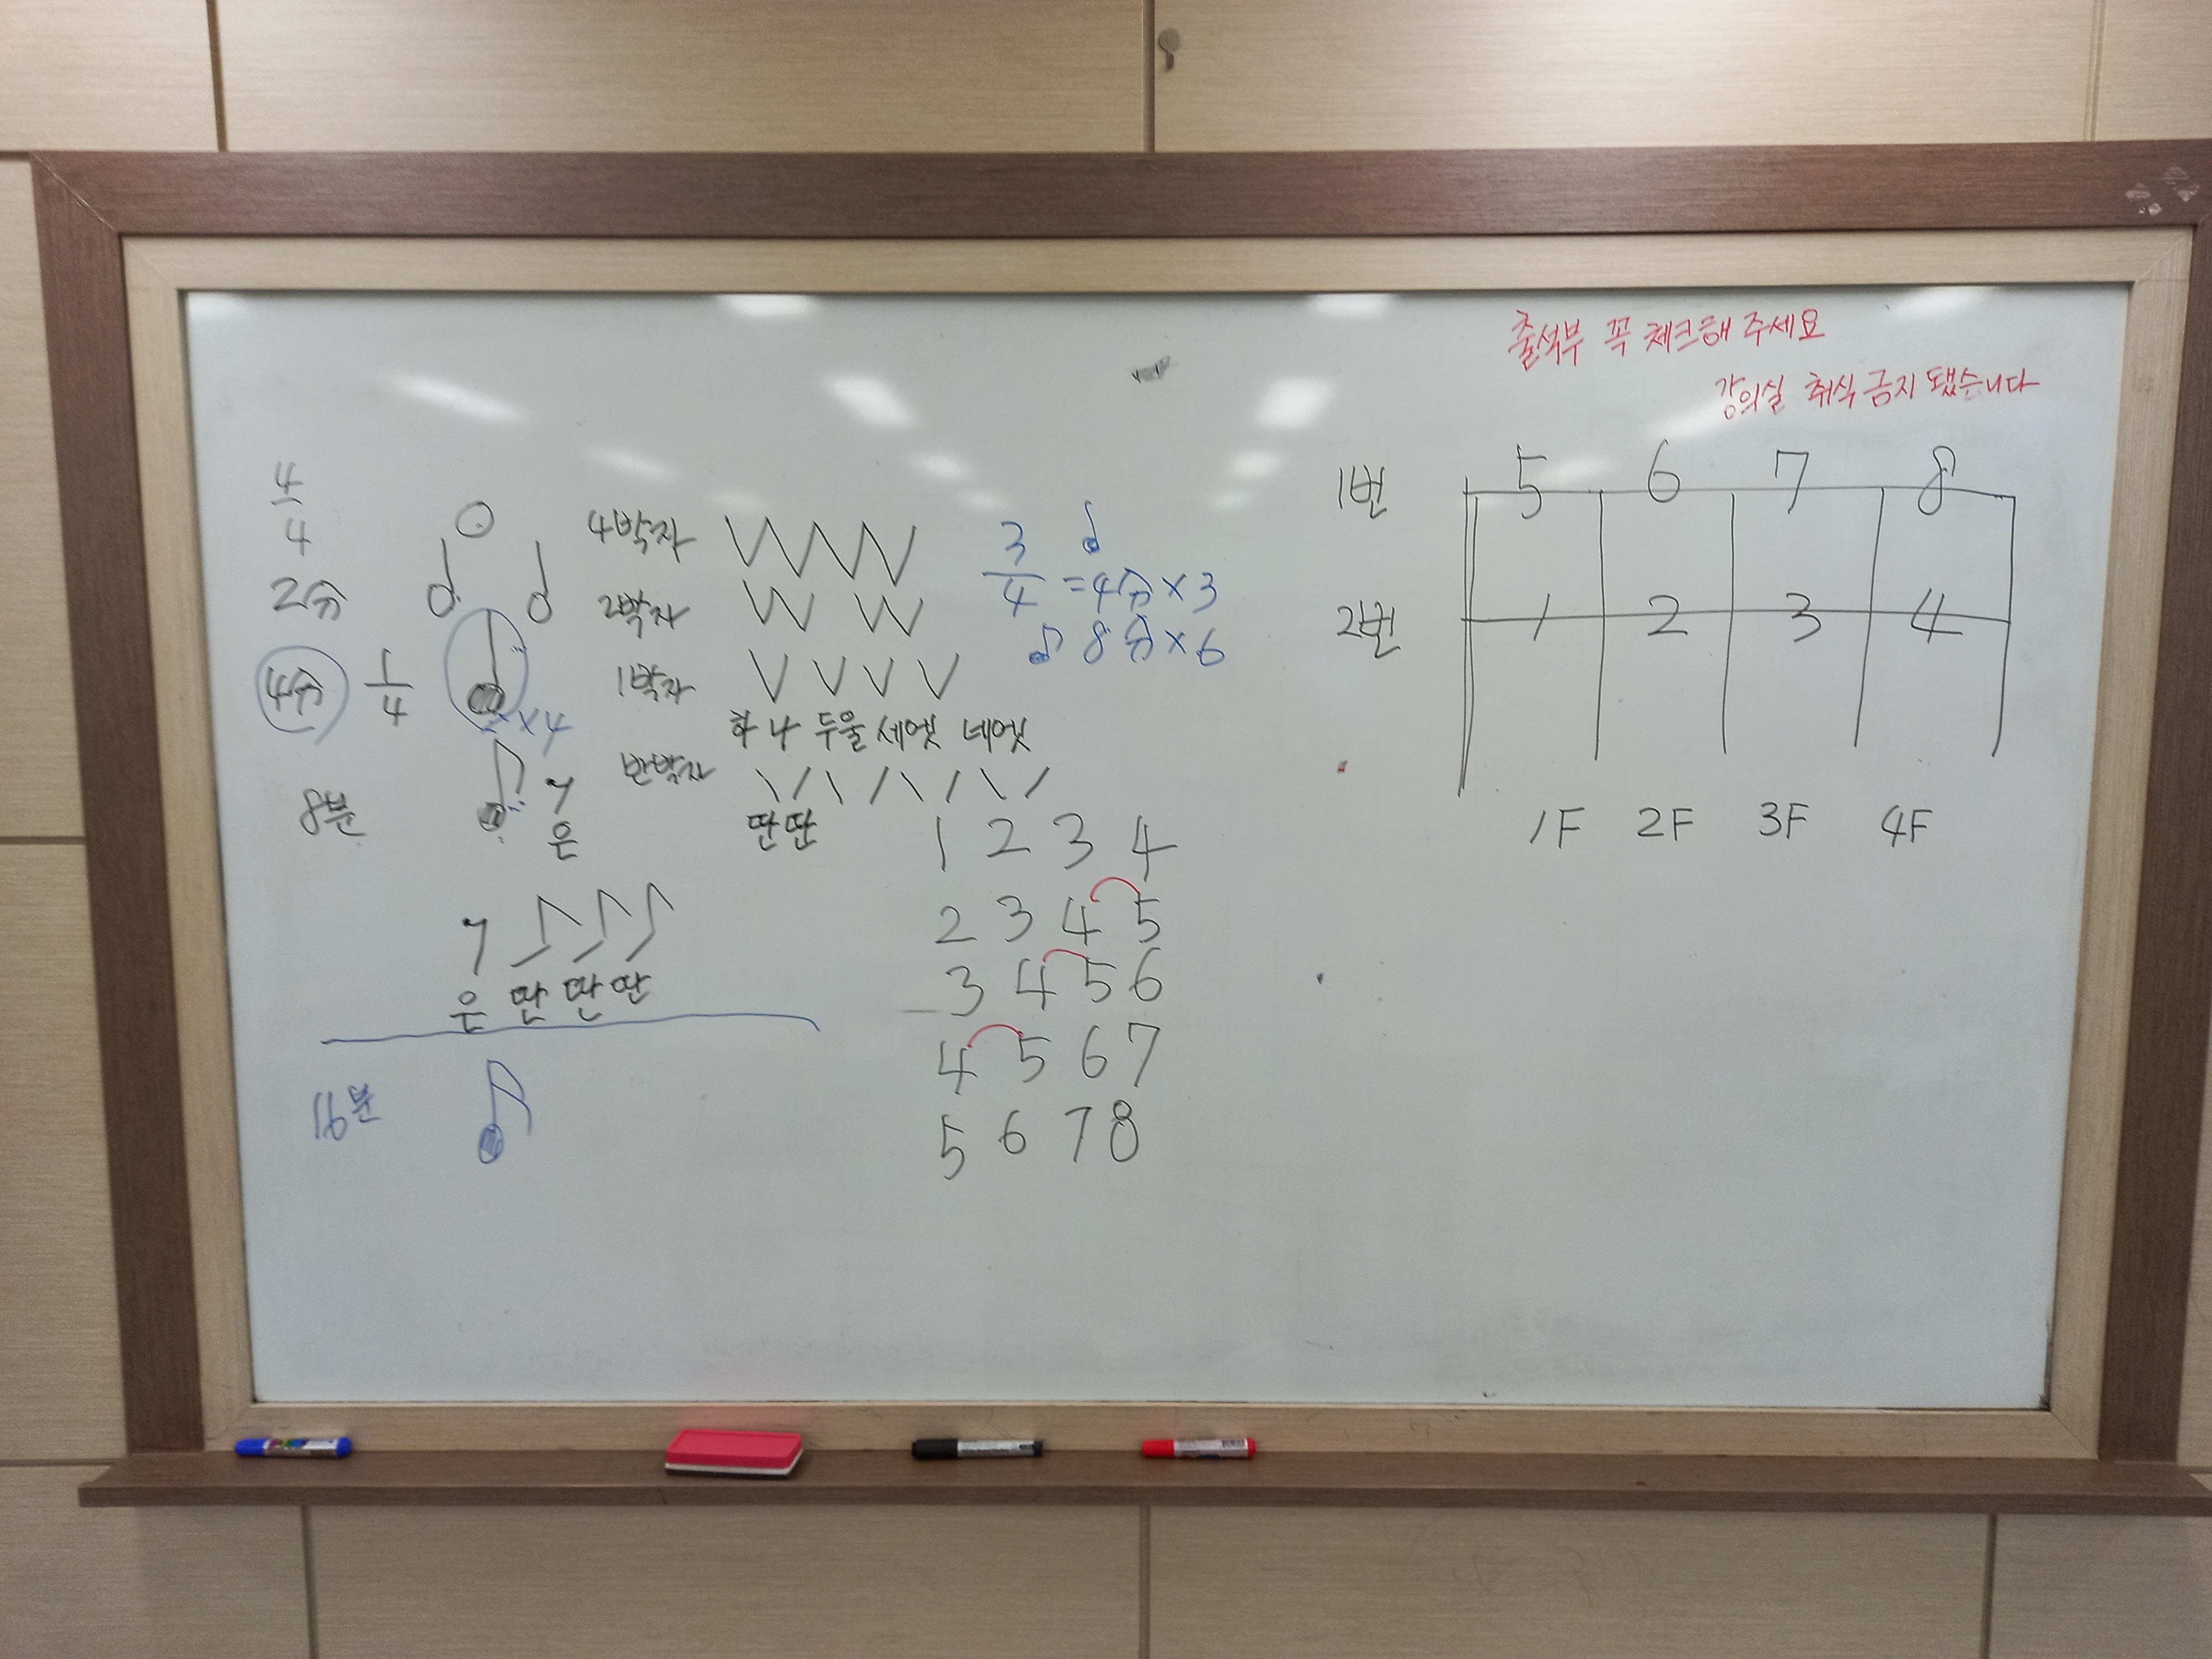 출석부 꼭 체크해 주세요
강의실 취식 금지 됐습니다
4/4
2分
4分 1/4 ×4
8분 은
4박자
2박자
1박자
하나 두울 세엣 네엣
반박자
딴딴
은 딴 딴 딴
16분
3/4 = 4分×3
8分×6
1 2 3 4
2 3 4 5
3 4 5 6
4 5 6 7
5 6 7 8
1번 5 6 7 8
2번 1 2 3 4
1F 2F 3F 4F